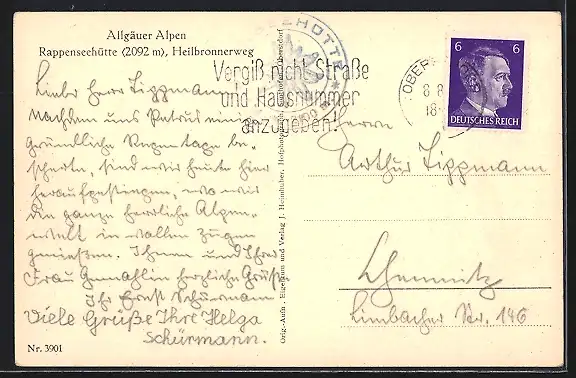 Allgäuer Alpen
Rappenseehütte (2092 m), Heilbronnerweg
Liebe Herr Tippmann
Nachdem uns Petrus einige
gründliche Regentage be-
scherte, sind wir heute hier
heraufgestiegen, wo wir
die ganze herrliche Alpen-
welt in vollen Zügen
genießen. Ihnen und Ihrer
Frau Gemahlin herzliche Grüße
Ihr Ernst Schürmann
Viele Grüße Ihre Helga
Schürmann.
Nr. 3901
Orig.-Aufn. Eigentum und Verlag J. Heimhuber, Hofphotograph, Sonthofen/Oberstdorf
Vergiß nicht Straße
und Hausnummer
anzugeben!
OBERS
8 8
18
6 6
DEUTSCHES REICH
Herrn
Arthur Tippmann
Chemnitz
Limbacher Str. 146